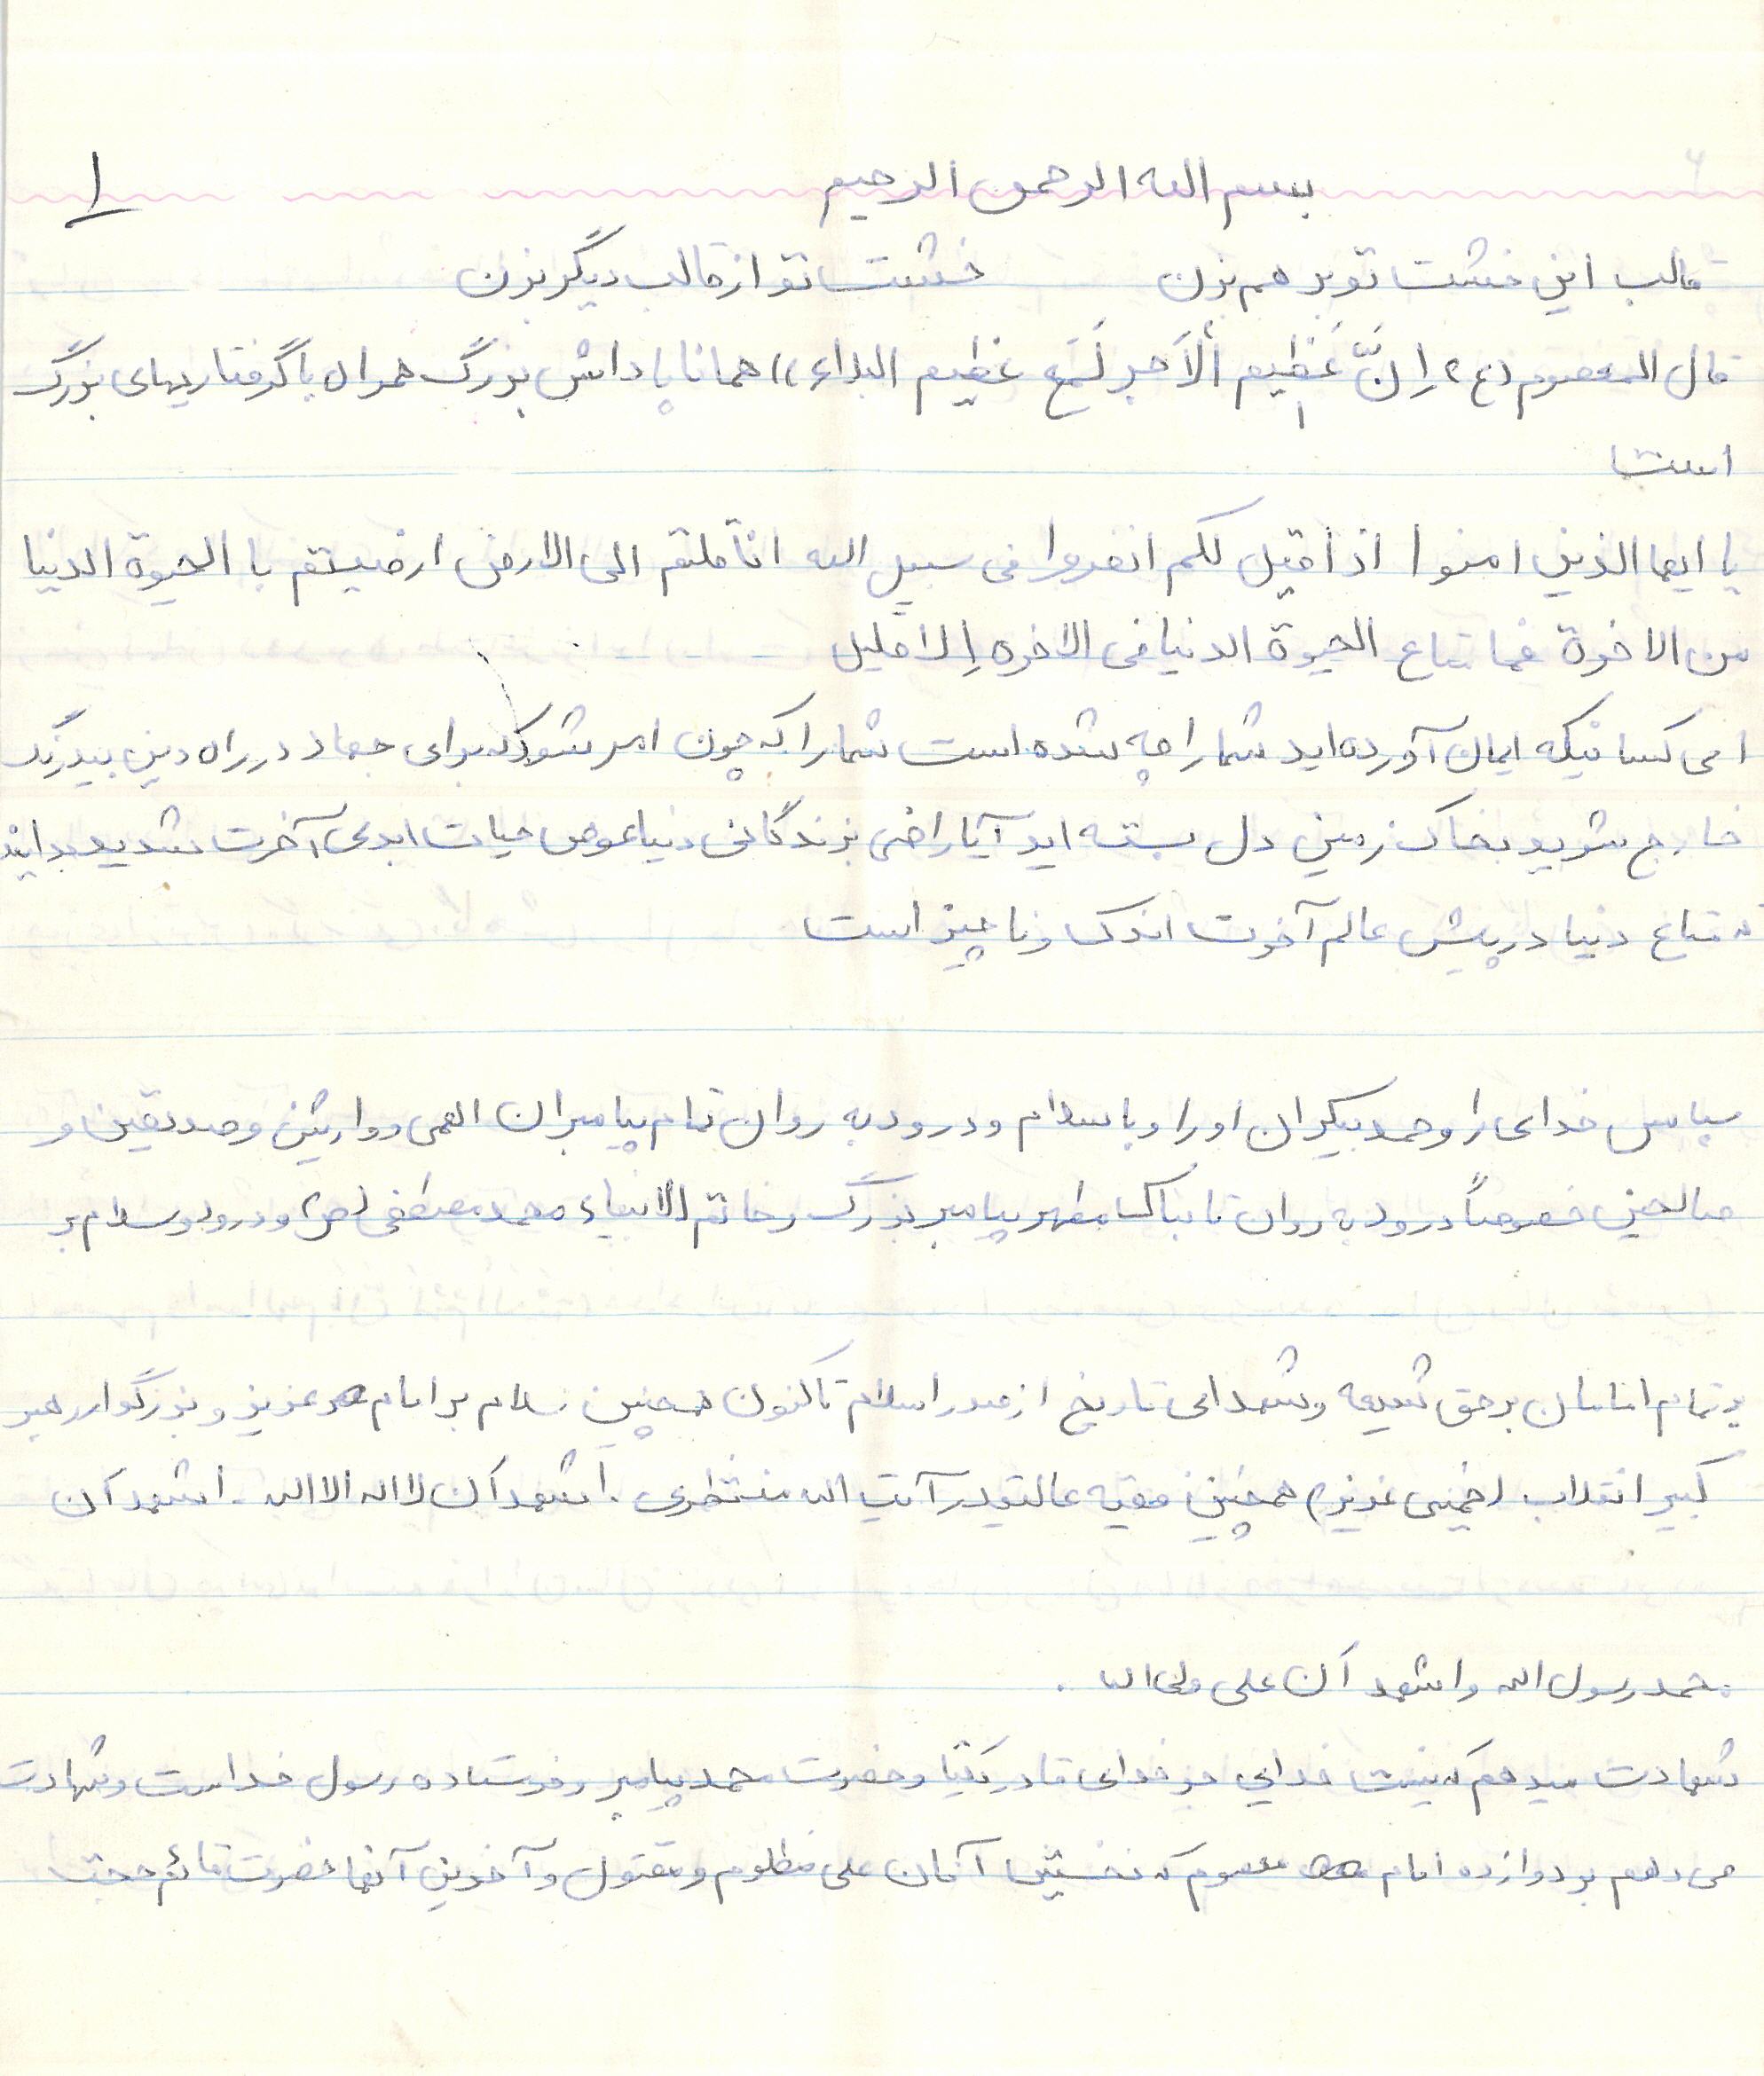 ۱
بسم الله الرحمن الرحیم
قالب این خشت تو بر هم بزن خشت تو از قالب دیگر بزن
قال المعصوم (ع) إنَّ عَظیم ألاَجر لَمَع عظیم البلاء)) همانا پاداش بزرگ همراه با گرفتاریهای بزرگ
است
یا ایها الذین امنوا اذا قیل لکم انفروا فی سبیل الله اثاقلتم الی الارض ارضیتم با الحیوة الدنیا
من الاخرة فما متاع الحیوة الدنیا فی الاخره اِلا قلیل
ای کسانیکه ایمان آورده اید شما را چه شده است شما را که چون امر شود که برای جهاد در راه دین بیدرنگ
خارج شوید بخاک زمین دل بسته اید آیا راضی بزندگانی دنیا عوض حیات ابدی آخرت شدید بدانید
که متاع دنیا در پیش عالم آخرت اندک و ناچیز است
سپاس خدای را و حمد بیکران او را و با سلام و درود به روان تمام پیامبران الهی و وارثین و صدیقین و
صالحین خصوصاً درود به روان تابناک مطهر پیامبر بزرگ و خاتم الانبیاء محمد مصطفی (ص) و درود و سلام بر
بر تمام امامان برحق شیعه و شهدای تاریخ از صدر اسلام تاکنون همچنین سلام بر امام عزیز و بزرگوار رهبر
کبیر انقلاب (خمینی عزیز) همچنین فقیه عالیقدر آیت الله منتظری . اشهد آن لا اله الا الله . اشهد آن
محمد رسول الله و اشهد آن علی ولی الله .
شهادت میدهم که نیست خدایی جز خدای قادر یکتا و حضرت محمد پیامبر و فرستاده رسول خداست و شهادت
می دهم بر دوازده امام معصوم که نخستین آنان علی مظلوم و مقتول و آخرین آنها حضرت قائم حجت